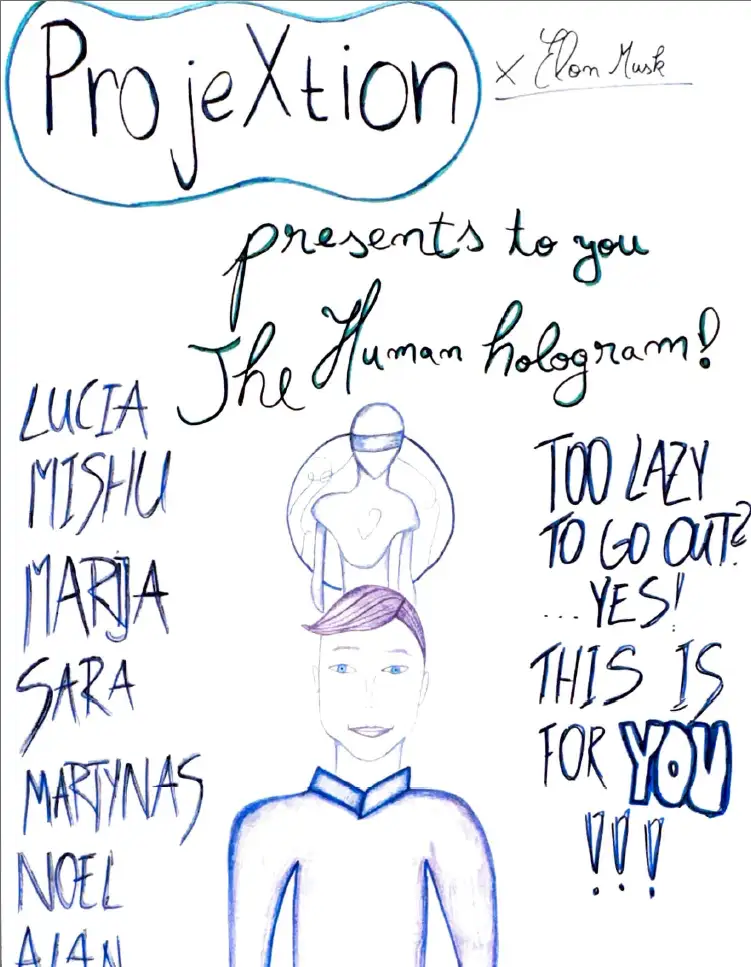 ProjeXtion
x Elon Musk
presents to you
The Human hologram!
LUCIA
MISHU
MARIJA
SARA
MARTYNAS
NOEL
TOO LAZY
TO GO OUT?
...YES!
THIS IS
FOR YOU
!!!